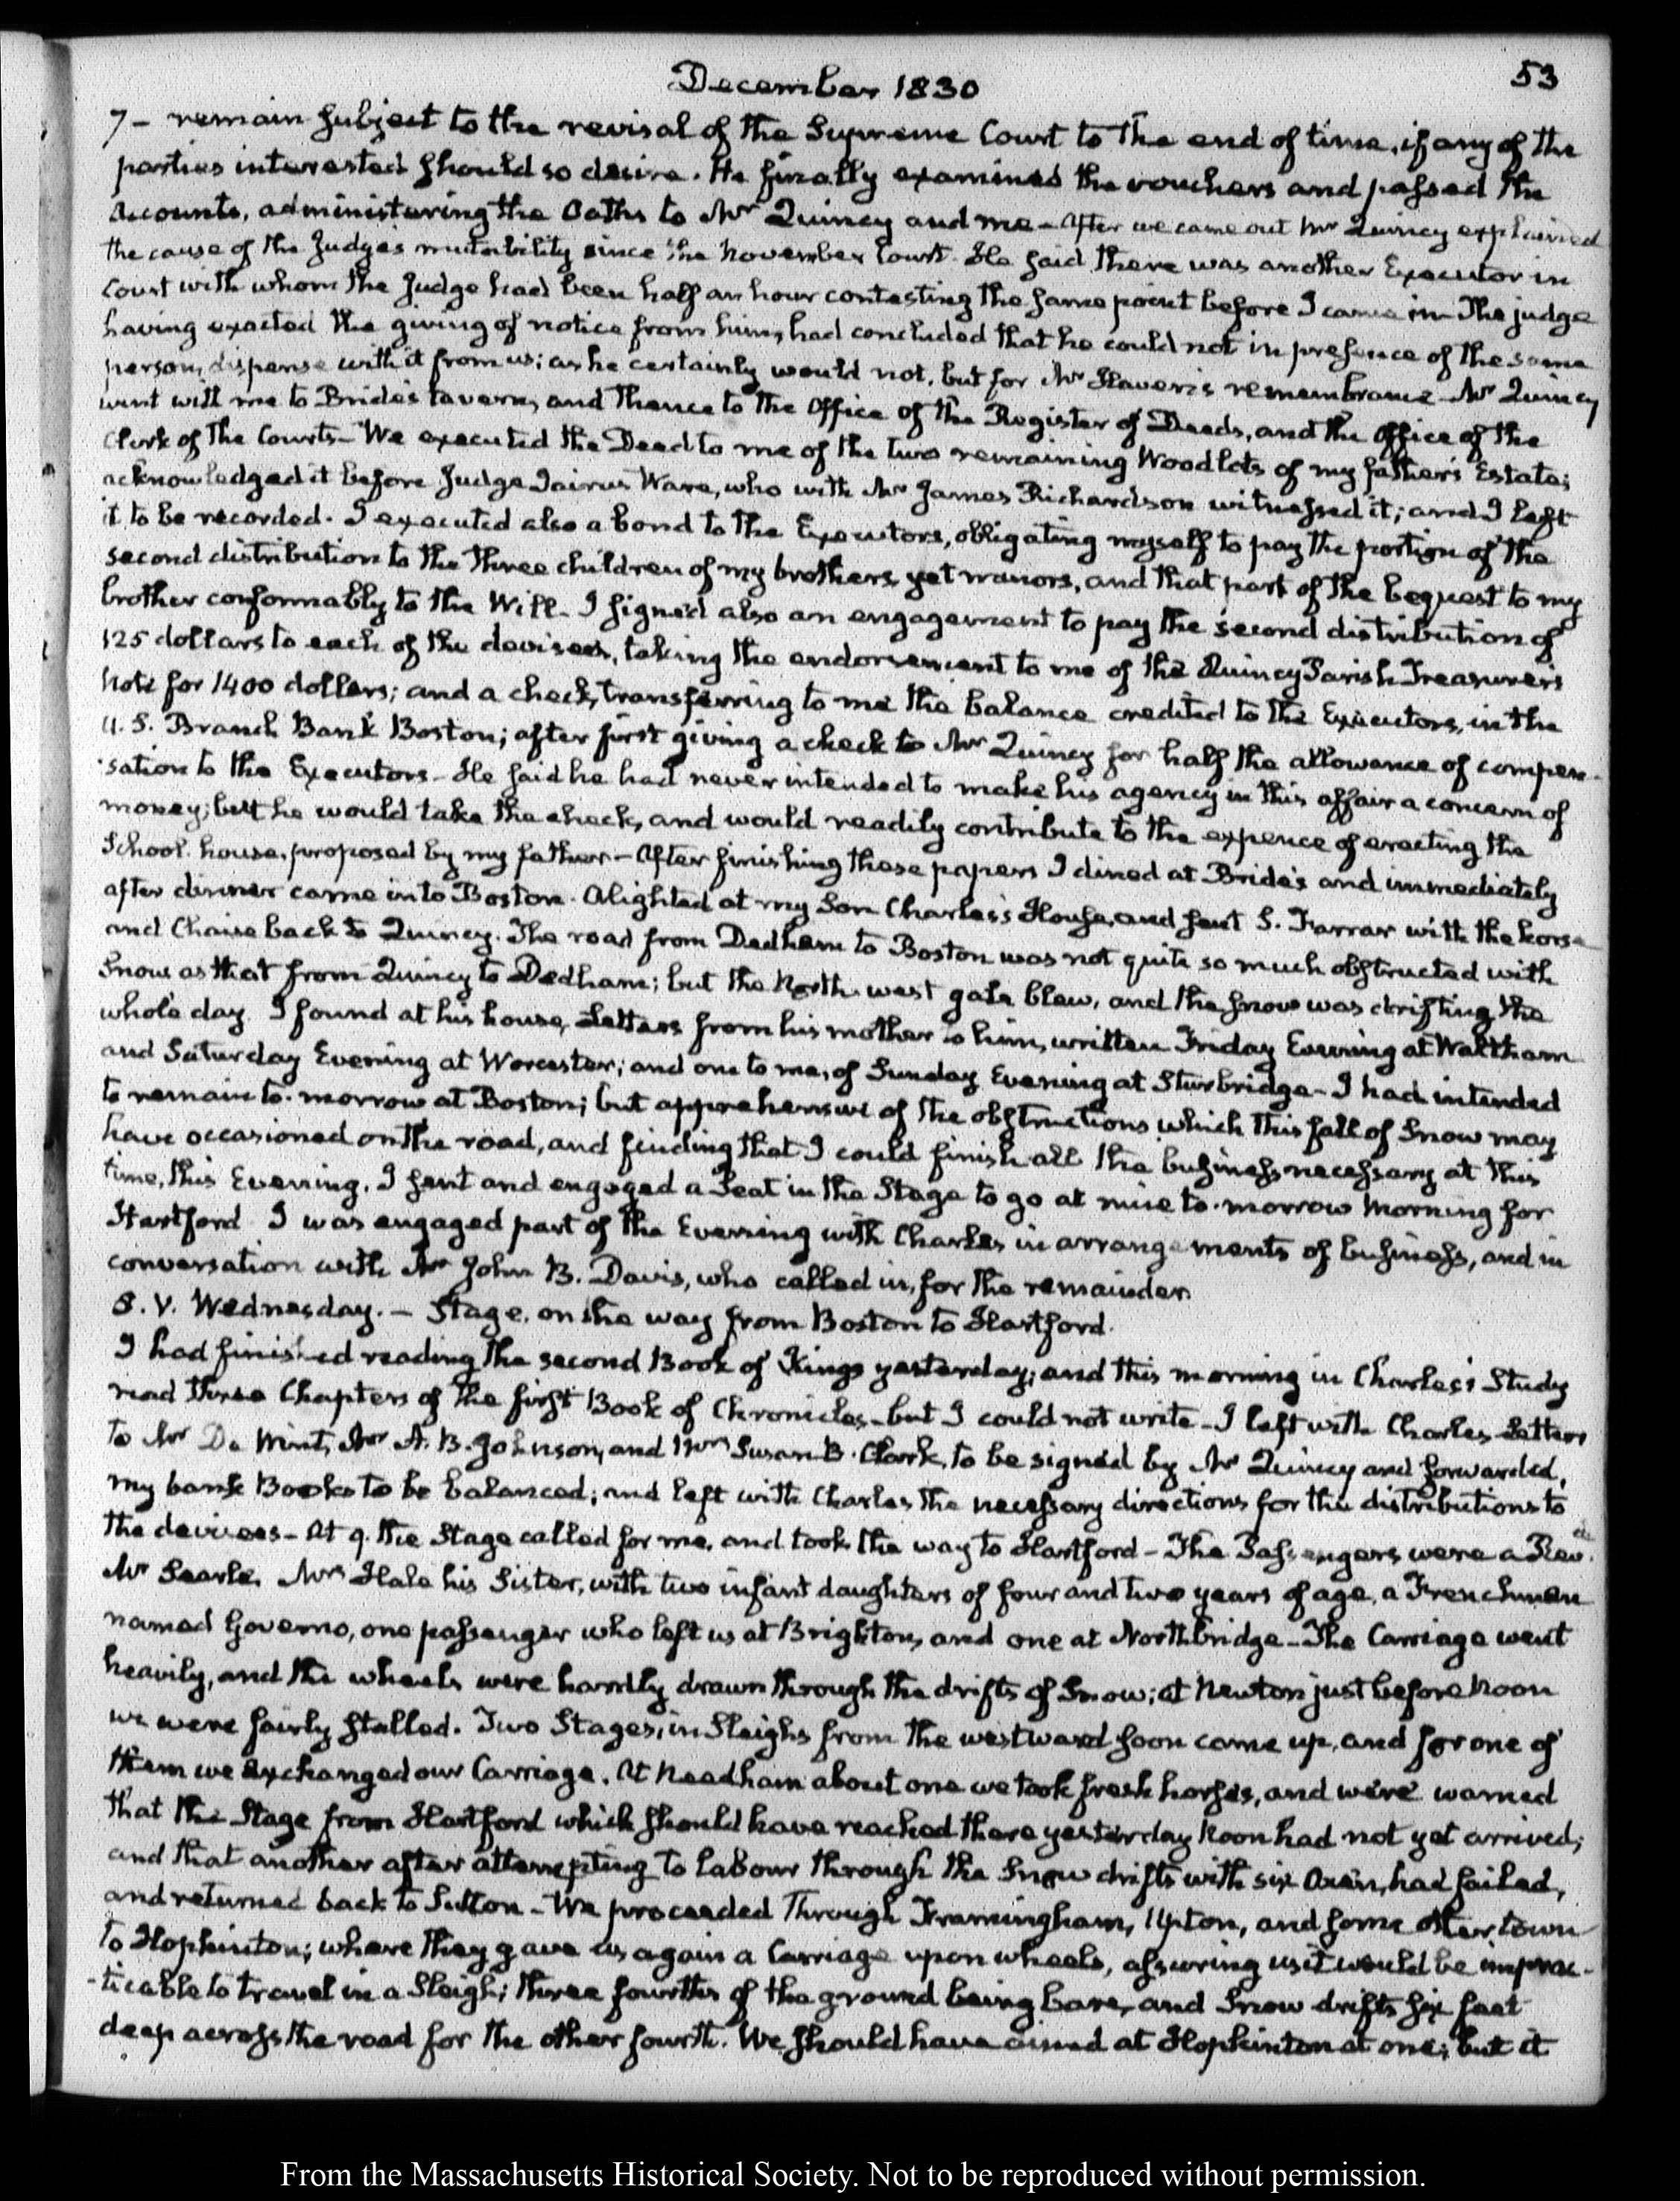 December 1830
53
7 – remain subject to the revisal of the Supreme Court to the end of time, if any of the
parties interested should so desire. He finally examined the vouchers and passed the
Accounts, administering the Oaths to Mr Quincy and me – After we came out Mr Quincy explained
the cause of the Judge's mutability since the November Court. He said there was another Executor in
Court with whom the Judge had been half an hour contesting the same point before I came in – The judge
having exacted the giving of notice from him, had concluded that he could not in presence of the same
person, dispense with it from us; as he certainly would not, but for Mr Haven's remembrance – Mr Quincy
went with me to Bride's tavern, and thence to the Office of the Register of Deeds, and the Office of the
Clerk of the Courts – We executed the Deed to me of the two remaining Woodlots of my father's Estate;
acknowledged it before Judge Jairus Ware, who with Mr James Richardson witnessed it; and I left
it to be recorded. I executed also a bond to the Executors, obligating myself to pay the portion of the
second distribution to the three children of my brothers yet minors, and that part of the bequest to my
brother conformably to the Will – I signed also an engagement to pay the second distribution of
125 dollars to each of the devisees, taking the endorsement to me of the Quincy Parish Treasurer's
Note for 1400 dollars; and a check, transferring to me the balance credited to the Executors, in the
U.S. Branch Bank Boston; after first giving a check to Mr Quincy for half the allowance of compen-
-sation to the Executors – He said he had never intended to make his agency in this affair a concern of
money; but he would take the check, and would readily contribute to the expence of erecting the
School house, proposed by my father – After finishing these papers I dined at Bride's and immediately
after dinner came into Boston. Alighted at my Son Charles's House, and sent S. Farrar with the horse
and Chaise back to Quincy. The road from Dedham to Boston was not quite so much obstructed with
Snow as that from Quincy to Dedham; but the North-west gale blew, and the snow was drifting the
whole day. I found at his house, Letters from his mother to him, written Friday Evening at Waltham
and Saturday Evening at Worcester; and one to me, of Sunday Evening at Sturbridge – I had intended
to remain to-morrow at Boston; but apprehensive of the obstructions which this fall of Snow may
have occasioned on the road, and finding that I could finish all the business necessary at this
time, this Evening, I sent and engaged a Seat in the Stage to go at nine to-morrow Morning for
Hartford. I was engaged part of the Evening with Charles in arrangements of business, and in
conversation with Mr John B. Davis, who called in, for the remainder.
8. V. Wednesday. – Stage, on the way from Boston to Hartford.
I had finished reading the second Book of Kings yesterday; and this morning in Charles's Study
read three Chapters of the first Book of Chronicles – but I could not write – I left with Charles Letters
to Mr De Wint, Mr A. B. Johnson, and Mrs Susan B. Clark, to be signed by Mr Quincy and forwarded,
my bank Books to be balanced; and left with Charles the necessary directions for the distributions to
the devisees – At 9. the Stage called for me, and took the way to Hartford – The Passengers were a Revd.
Mr Searle, Mrs Hale his Sister, with two infant daughters of four and two years of age, a Frenchman
named Governo, one passenger who left us at Brighton, and one at Northbridge – The Carriage went
heavily, and the wheels were hardly drawn through the drifts of Snow; at Newton just before Noon
we were fairly stalled. Two Stages, in Sleighs from the westward soon came up, and for one of
them we exchanged our Carriage. At Needham about one we took fresh horses, and were warned
that the Stage from Hartford which should have reached there yesterday Noon had not yet arrived;
and that another after attempting to labour through the Snow drifts with six Oxen, had failed,
and returned back to Sutton – We proceeded through Framingham, Upton, and some other town
to Hopkinton; where they gave us again a Carriage upon wheels, assuring us it would be imprac-
-ticable to travel in a Sleigh; three fourths of the ground being bare, and Snow drifts six feet
deep across the road for the other fourth. We should have dined at Hopkinton at one; but it
From the Massachusetts Historical Society. Not to be reproduced without permission.